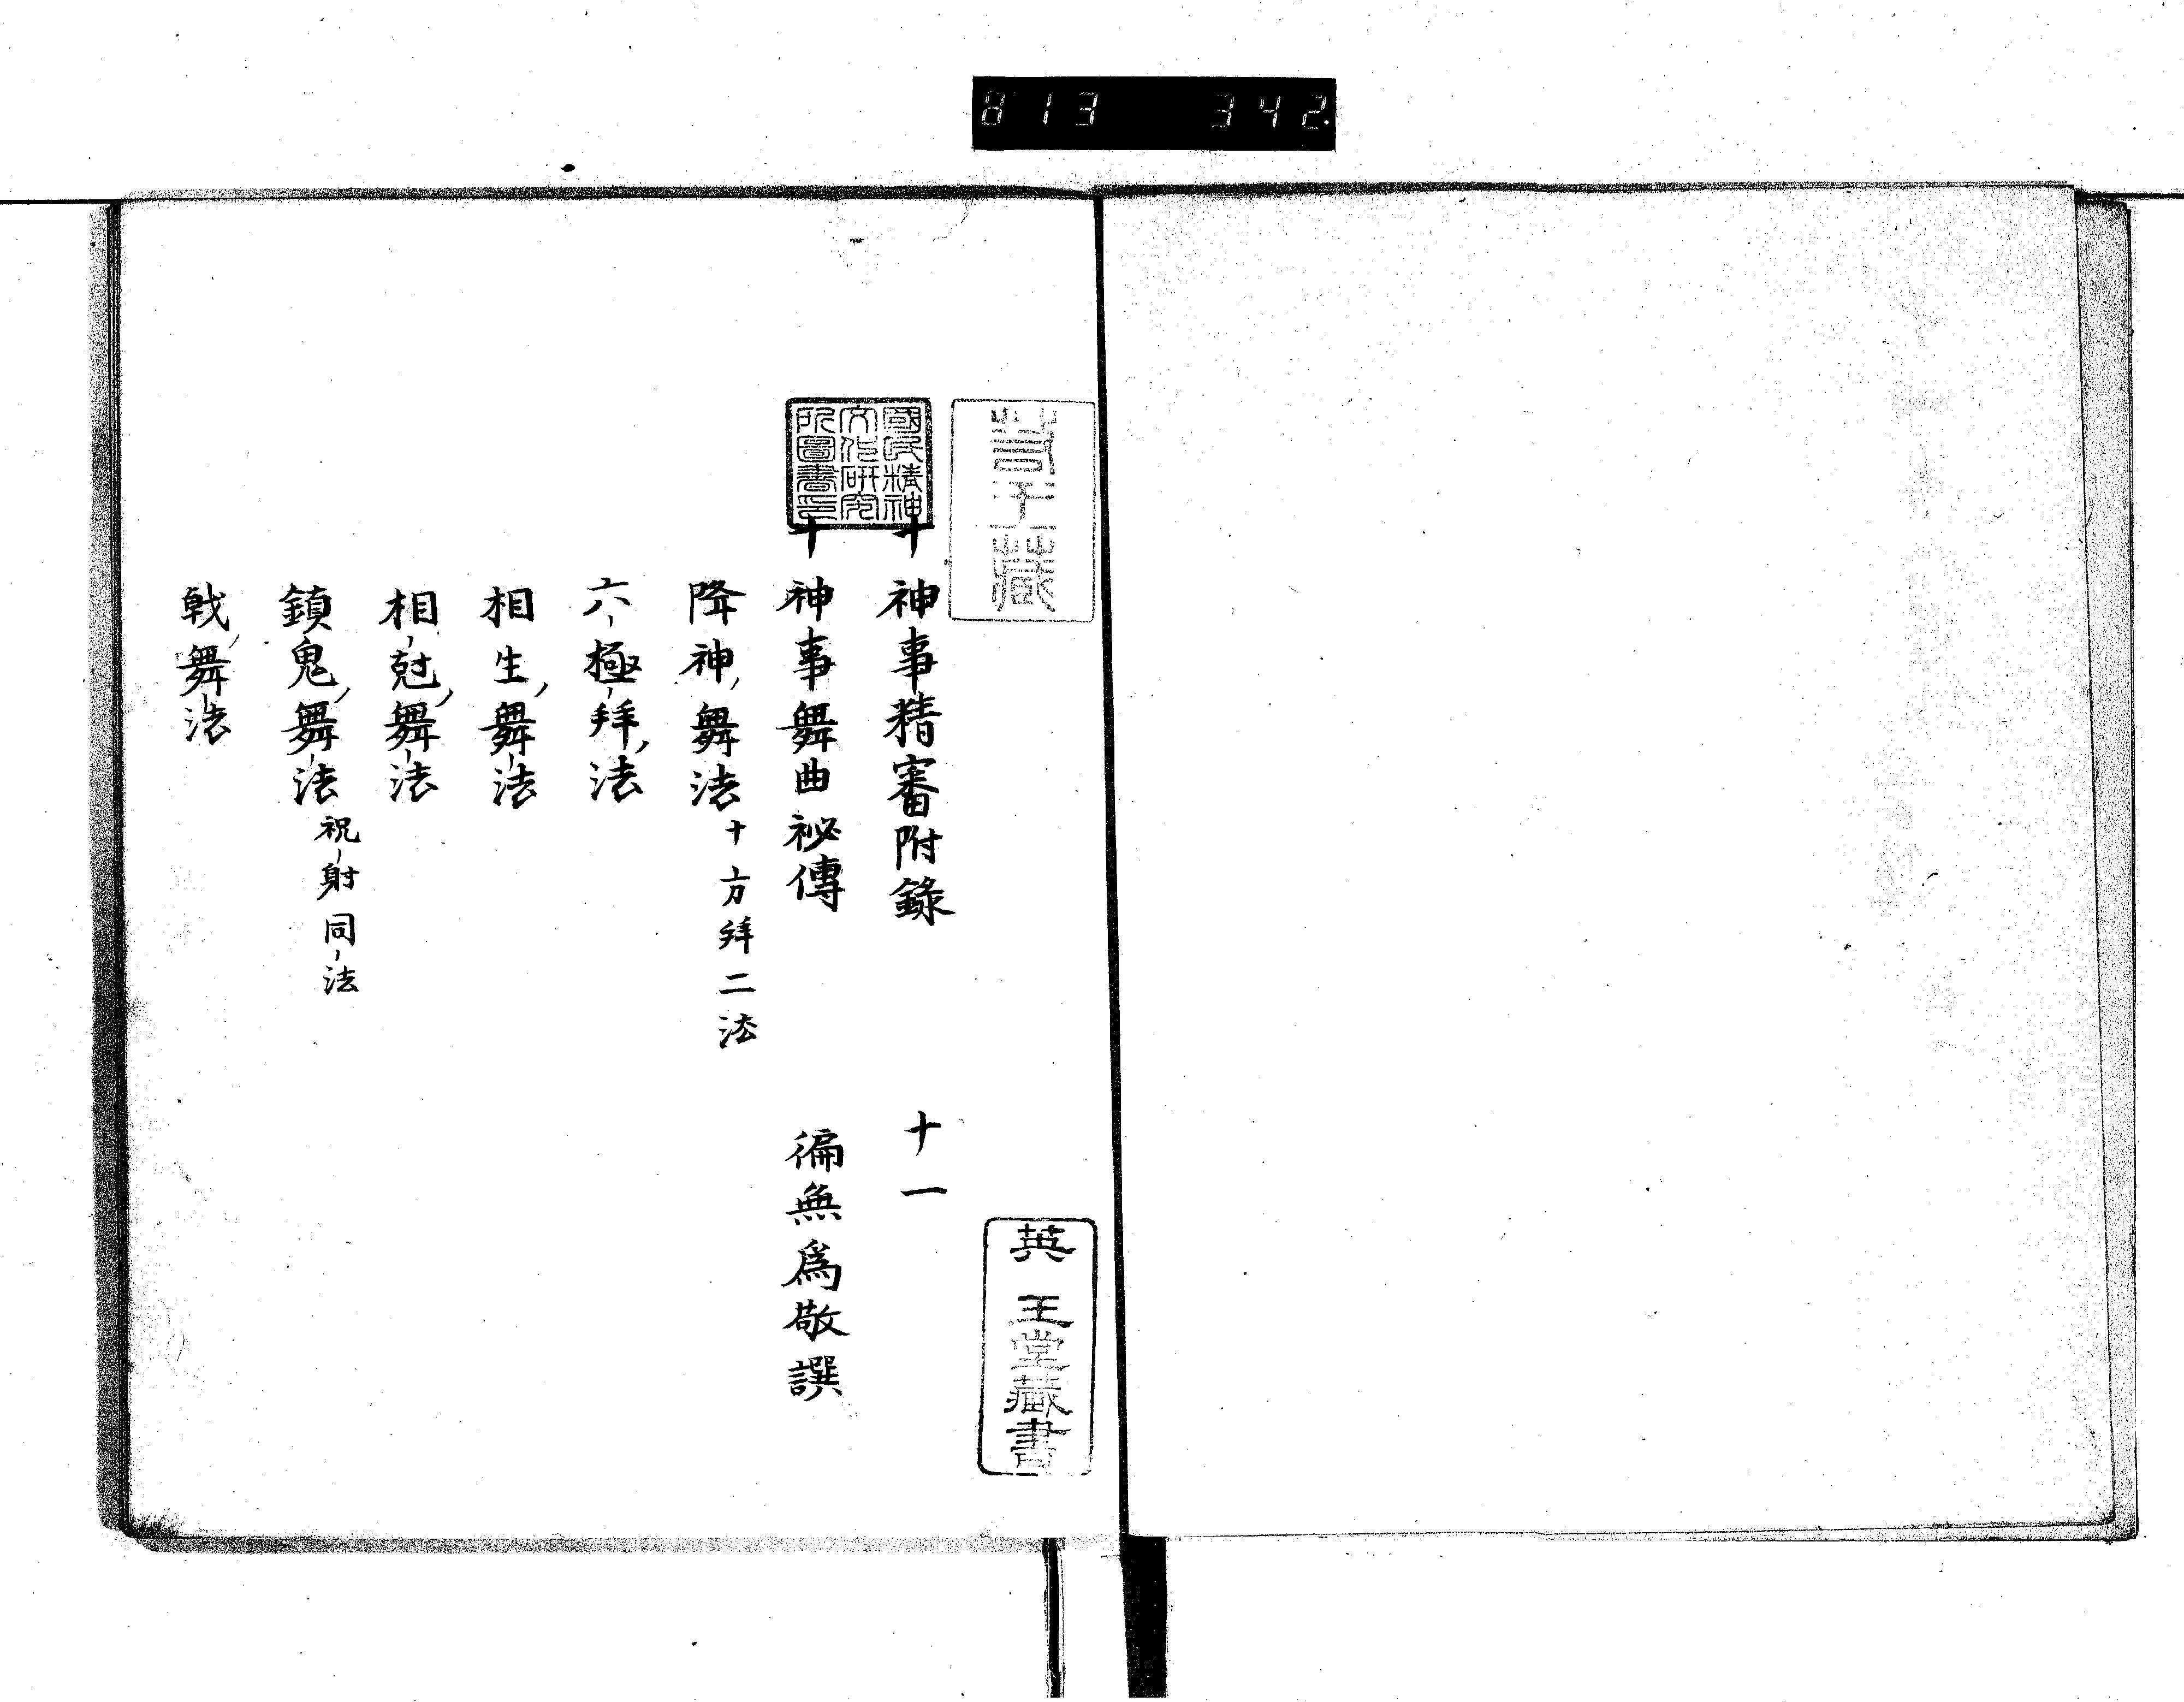 813 342
十神事精審附錄 十一
十神事舞曲祕傳 徧無爲敬譔
降神舞法 十方拜二法
六極拜法
相生舞法
相尅舞法
鎮鬼舞法 祝射同法
戟舞法
國民精神
文化研究
所圖書印
英王堂藏書